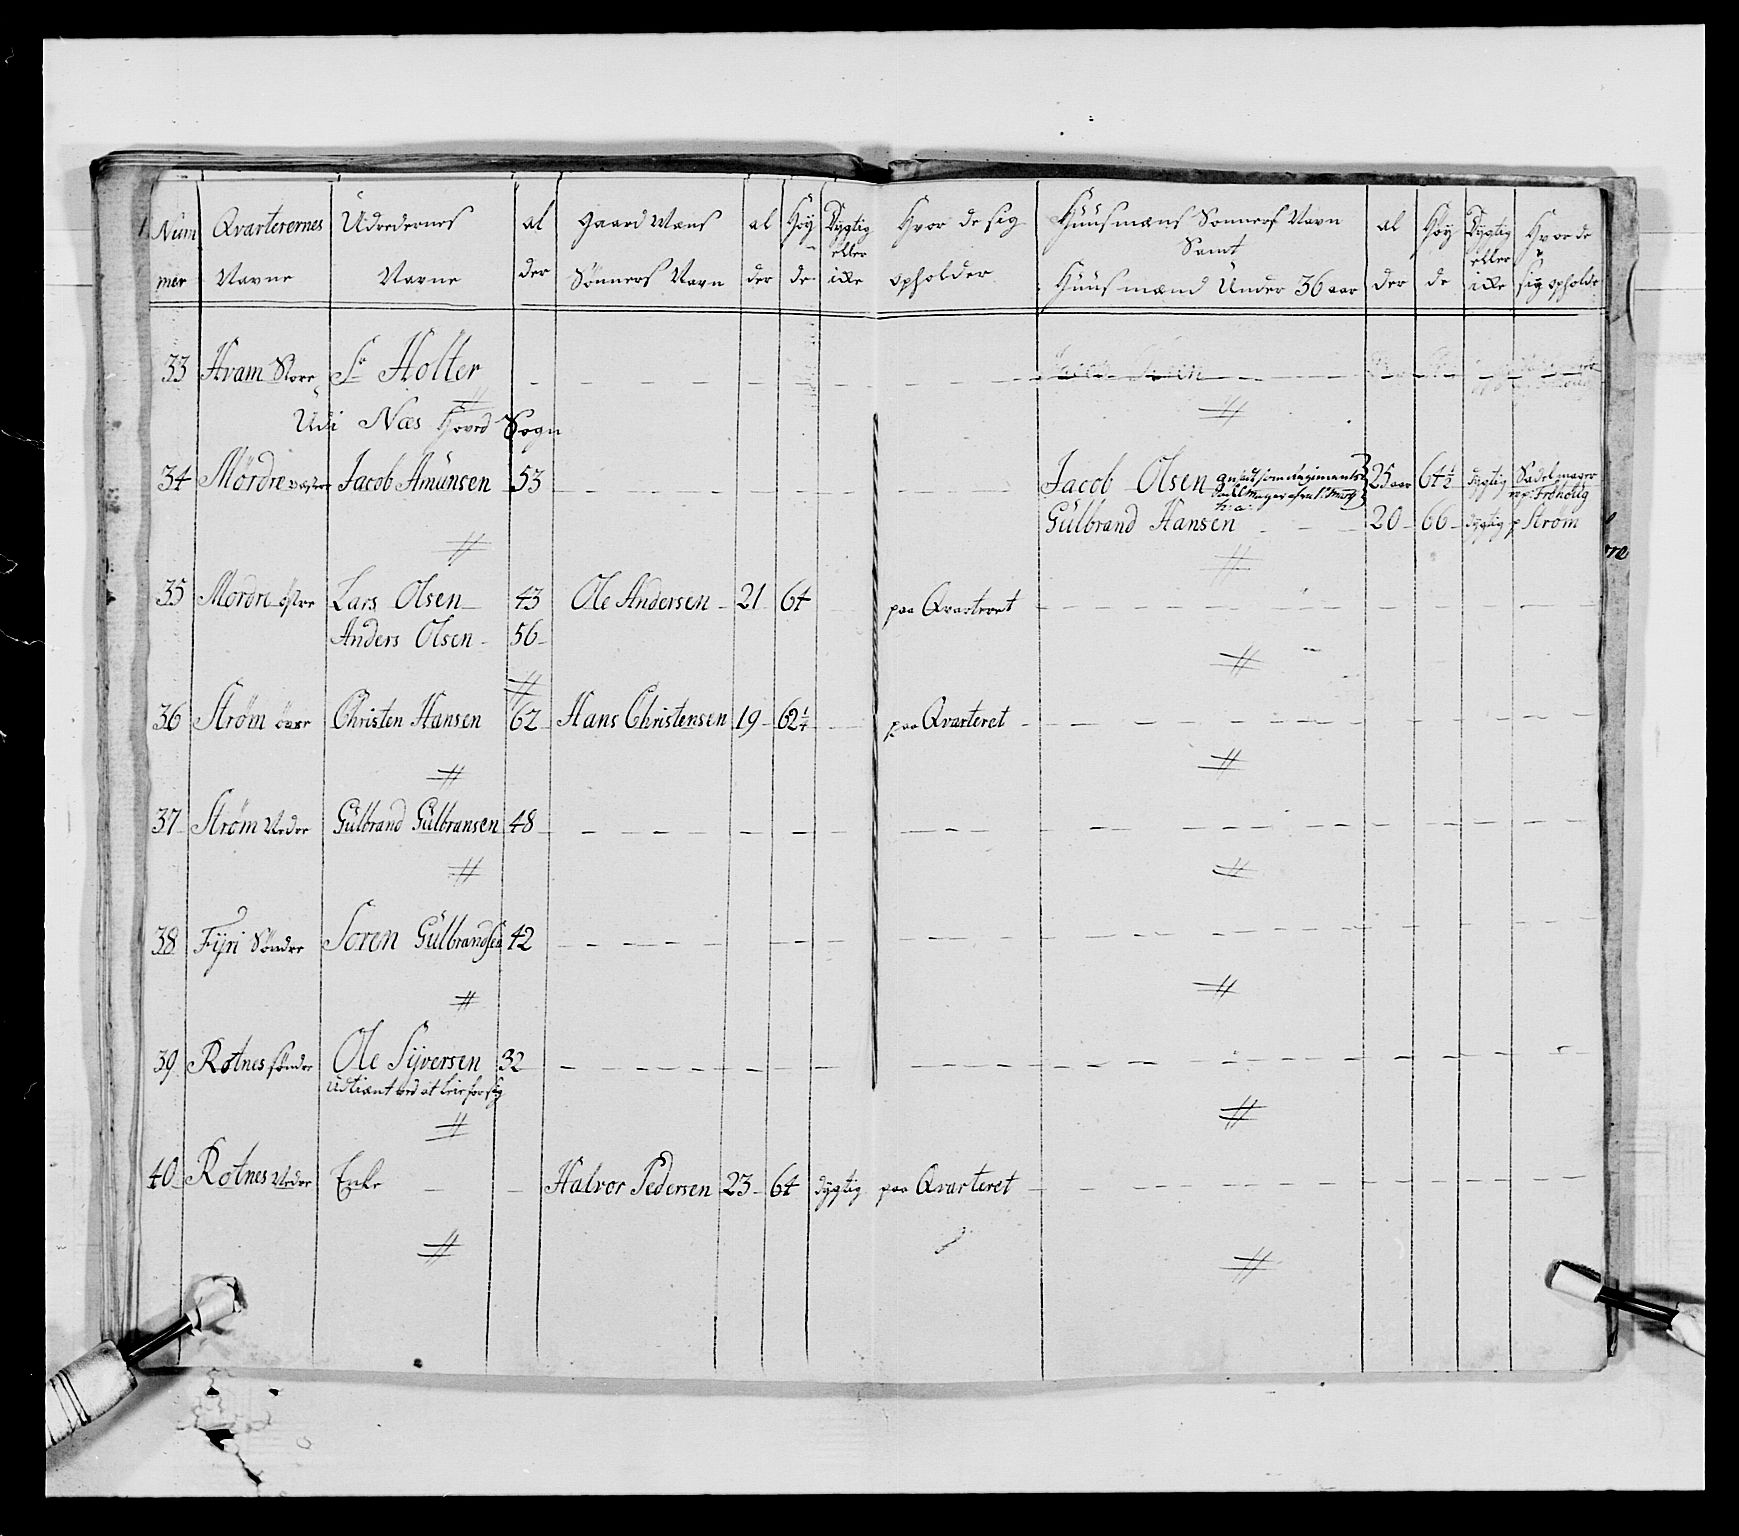 Num mer | Qvarterernes Navne | Udredernes Navne | al der | Gaard Mæns Sönners Navn | al der | Höy de | Dygtig eller ikke | Hvor de sig opholder | Huusmæns Sönners Navn Samt Huusmænd Under 36 aar | al der | Höy de | Dygtig eller ikke | Hvor de sig opholde
33 Hvam Store Sr Holter
Udi Næs Hoved Sogn
34 Mördre Jacob Amunsen 53 Jacob Olsen 25 aar 64½ dygtig Sadelmager
Gülbrand Hansen 20 66 dygtig p Ström
35 Mordre östre Lars Olsen 43 Ole Andersen 21 64 paa Qvarteret
Anders Olsen 56
36 Strøm övre Christen Hansen 62 Hans Christensen 19 62¼ paa Qvarteret
37 Strøm Nedre Gülbrand Gülbransen 48
38 Fyri Söndre Soren Gülbrandsen 42
39 Rotnes söndre Ole Syversen 32
udtient ved at leie for sig
40 Rotnes Nedre Enke Halvor Pedersen 23 64 dygtig paa Qvarteret